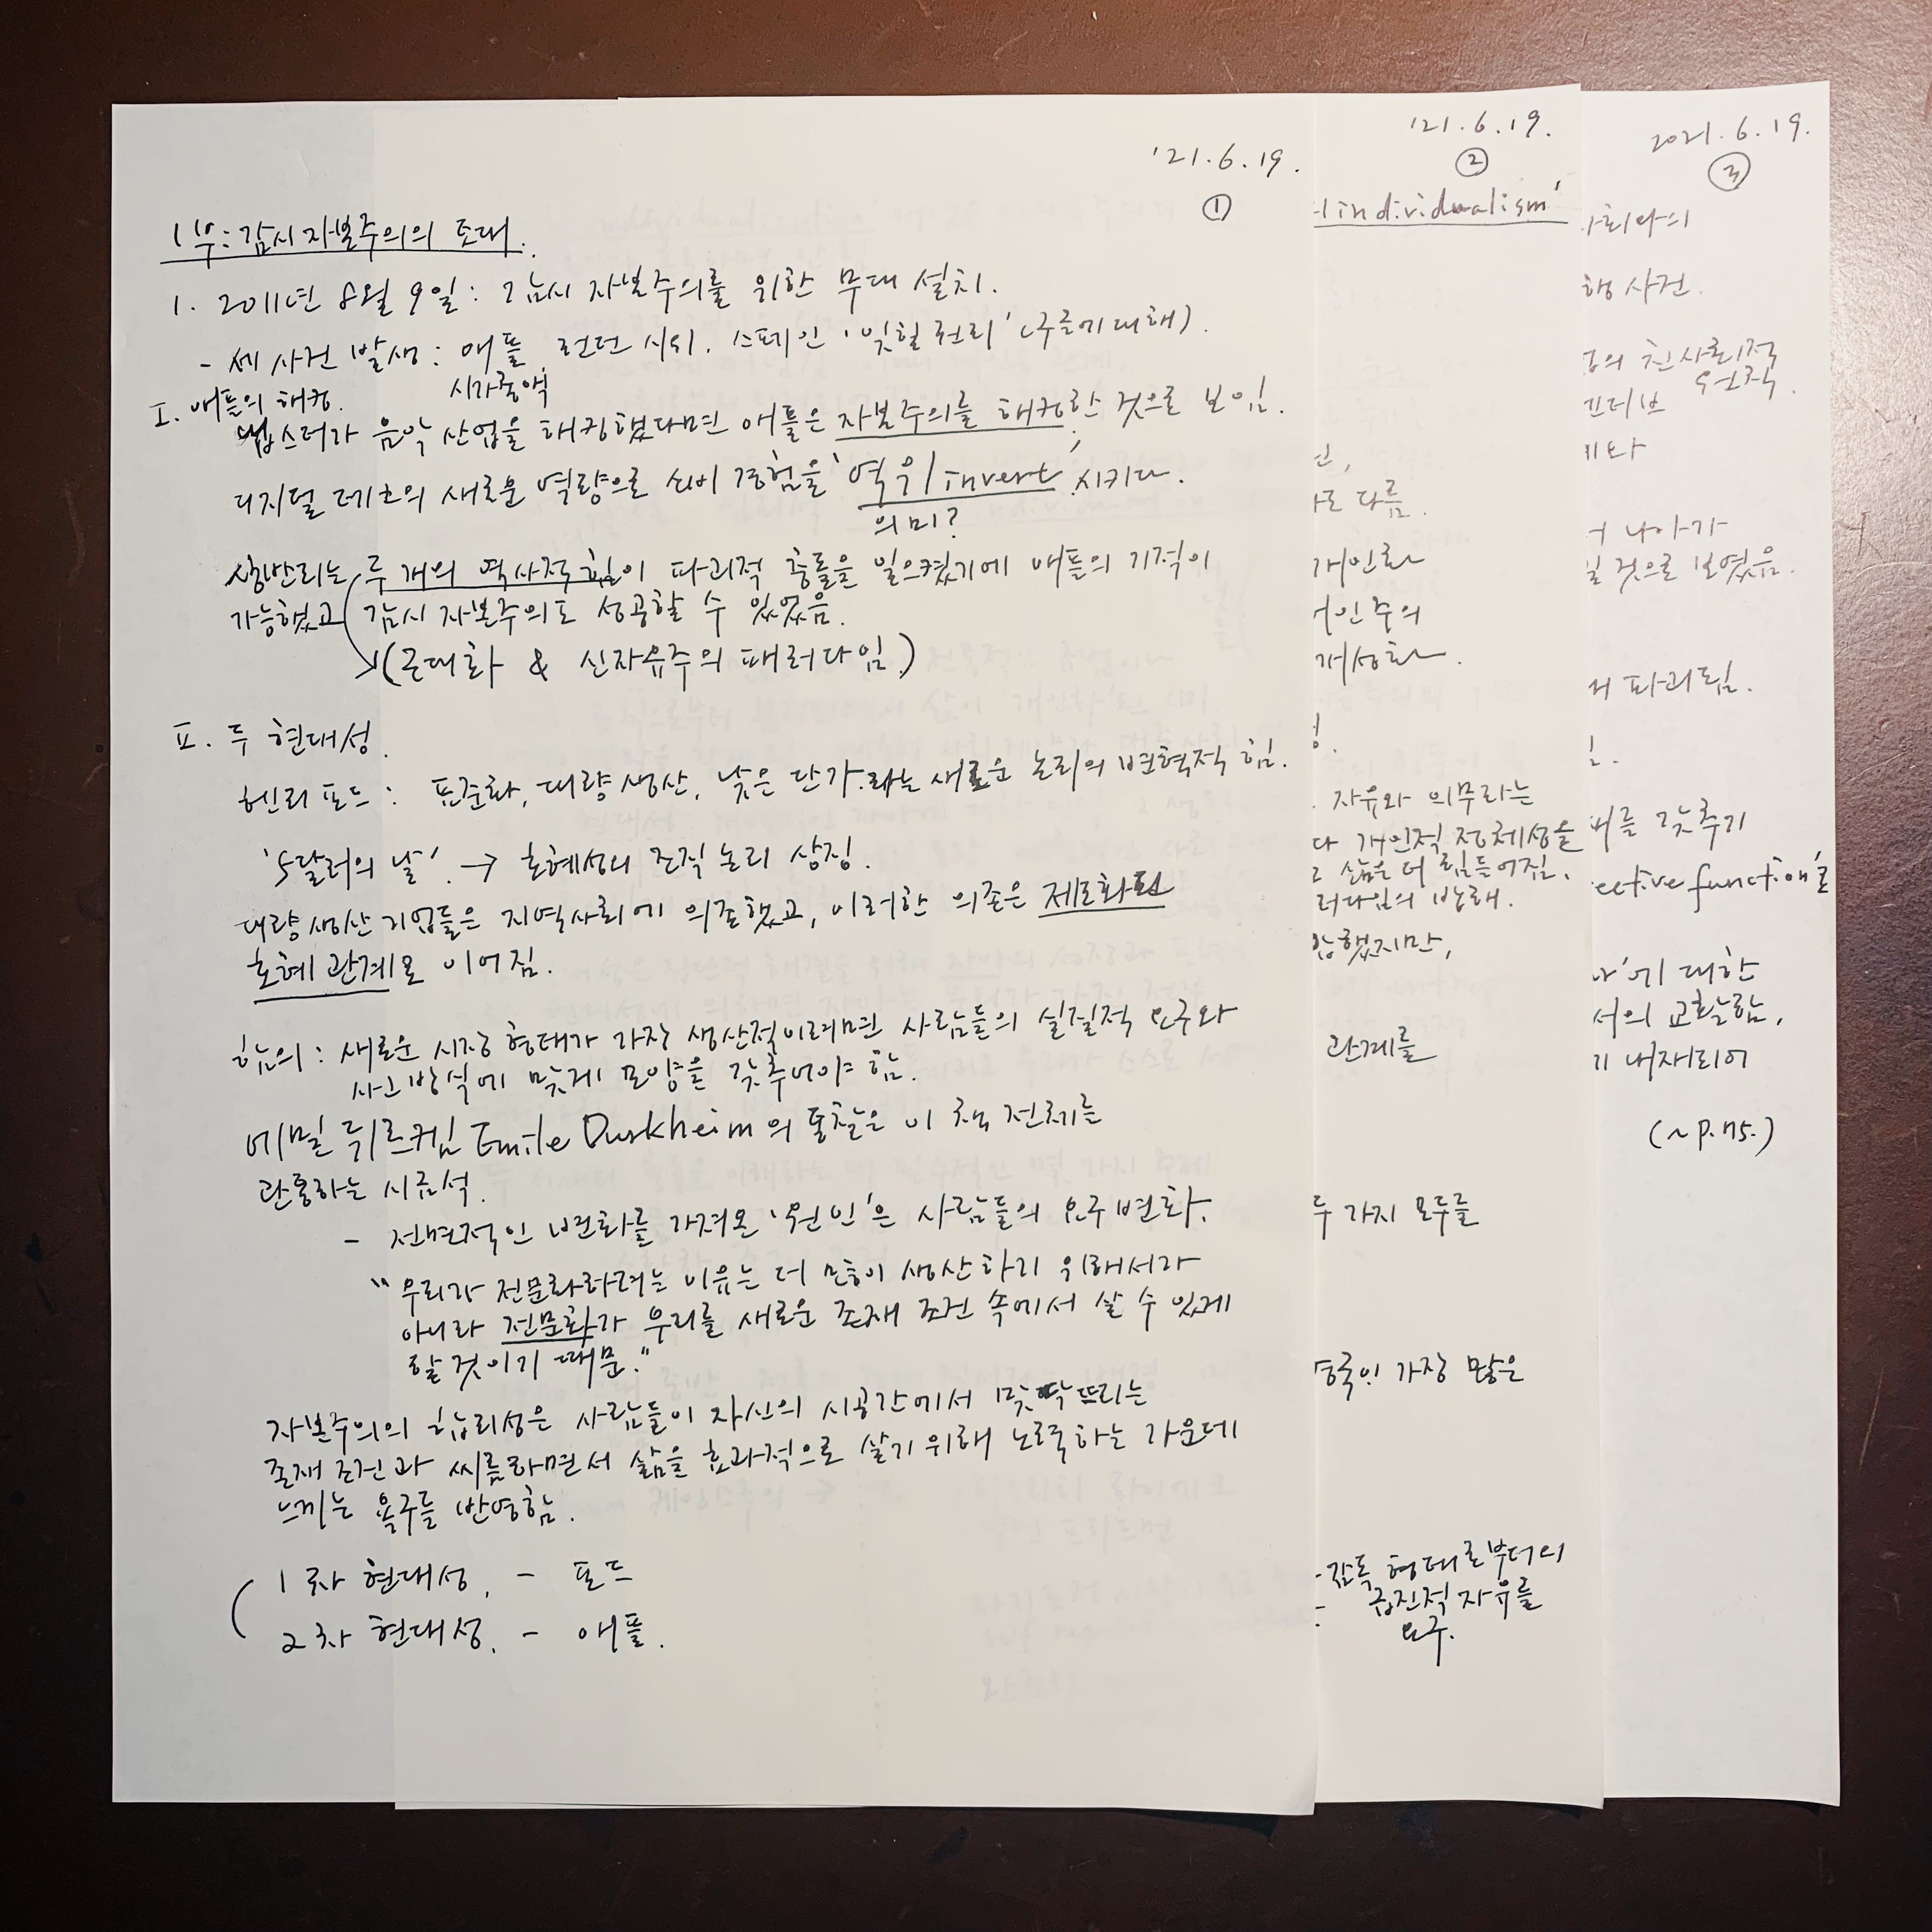 '21.6.19.
①
1부: 감시 자본주의의 토대.
1. 2011년 8월 9일: 감시 자본주의를 위한 무대 설치.
- 세 사건 발생: 애플, 런던 시위, 스페인 '잊힐 권리' (구글에 대해).
시가총액
I. 애플의 해킹.
냅스터가 음악 산업을 해킹했다면 애플은 자본주의를 해킹한 것으로 보임.
디지털 테크의 새로운 역량으로 소비 경험을 '역위 invert' 시키다.
의미?
상반되는 두 개의 역사적 힘이 파괴적 충돌을 일으켰기에 애플의 기적이
가능했고 감시 자본주의도 성공할 수 있었음.
(근대화 & 신자유주의 패러다임.)
II. 두 현대성.
헨리 포드: 표준화, 대량 생산, 낮은 단가라는 새로운 논리의 변혁적 힘.
'5달러의 날'. → 호혜성의 조직 논리 상징.
대량 생산 기업들은 지역사회에 의존했고, 이러한 의존은 제도화된
호혜 관계로 이어짐.
함의: 새로운 시장 형태가 가장 생산적이려면 사람들의 실질적 요구와
사고방식에 맞게 모양을 갖추어야 함.
에밀 뒤르켐 Emile Durkheim의 통찰은 이 책 전체를
관통하는 시금석.
- 전면적인 변화를 가져온 '원인'은 사람들의 요구 변화.
"우리가 전문화하려는 이유는 더 많이 생산하기 위해서가
아니라 전문화가 우리를 새로운 존재 조건 속에서 살 수 있게
할 것이기 때문."
자본주의의 합리성은 사람들이 자신의 시공간에서 맞닥뜨리는
존재 조건과 씨름하면서 삶을 효과적으로 살기 위해 노력하는 가운데
느끼는 욕구를 반영함.
1차 현대성. - 포드
2차 현대성. - 애플.
'21.6.19.
②
individualism'
로 다름.
개인화
개인주의
개성화.
자유와 의무라는
다 개인적 정체성을
고 삶은 더 힘들어짐.
러다임의 방해.
않했지만,
관계를
두 가지 모두를
영국이 가장 많은
감독 형태로부터의
급진적 자유를
요구.
2021.6.19.
③
사회와의
행 사건.
의 친사회적
우선적.
센티브
나아가
것으로 보였음.
서 파괴됨.
를 갖추기
ective function'을
나'에 대한
서의 교활함,
이 내재되어
(~p.75.)